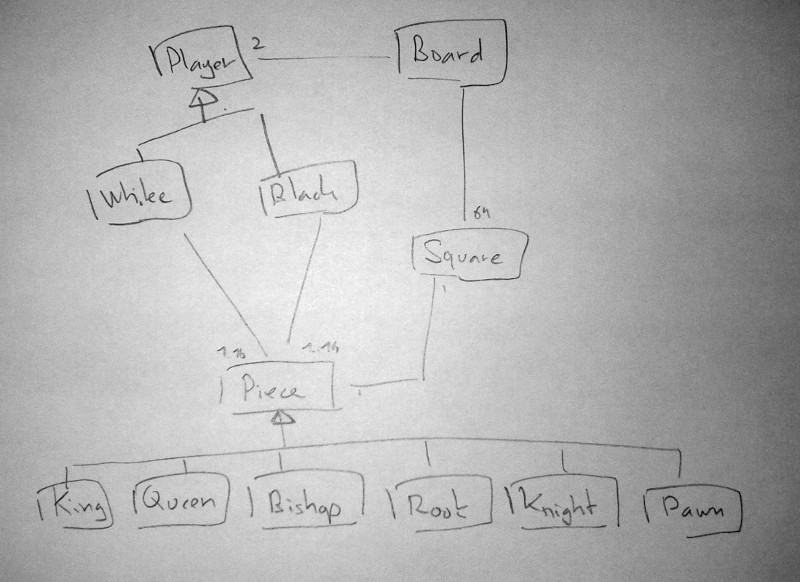 Player 2
Board
White
Black
64
Square
1
1..16 1..16
Piece
1
King Queen Bishop Rook Knight Pawn